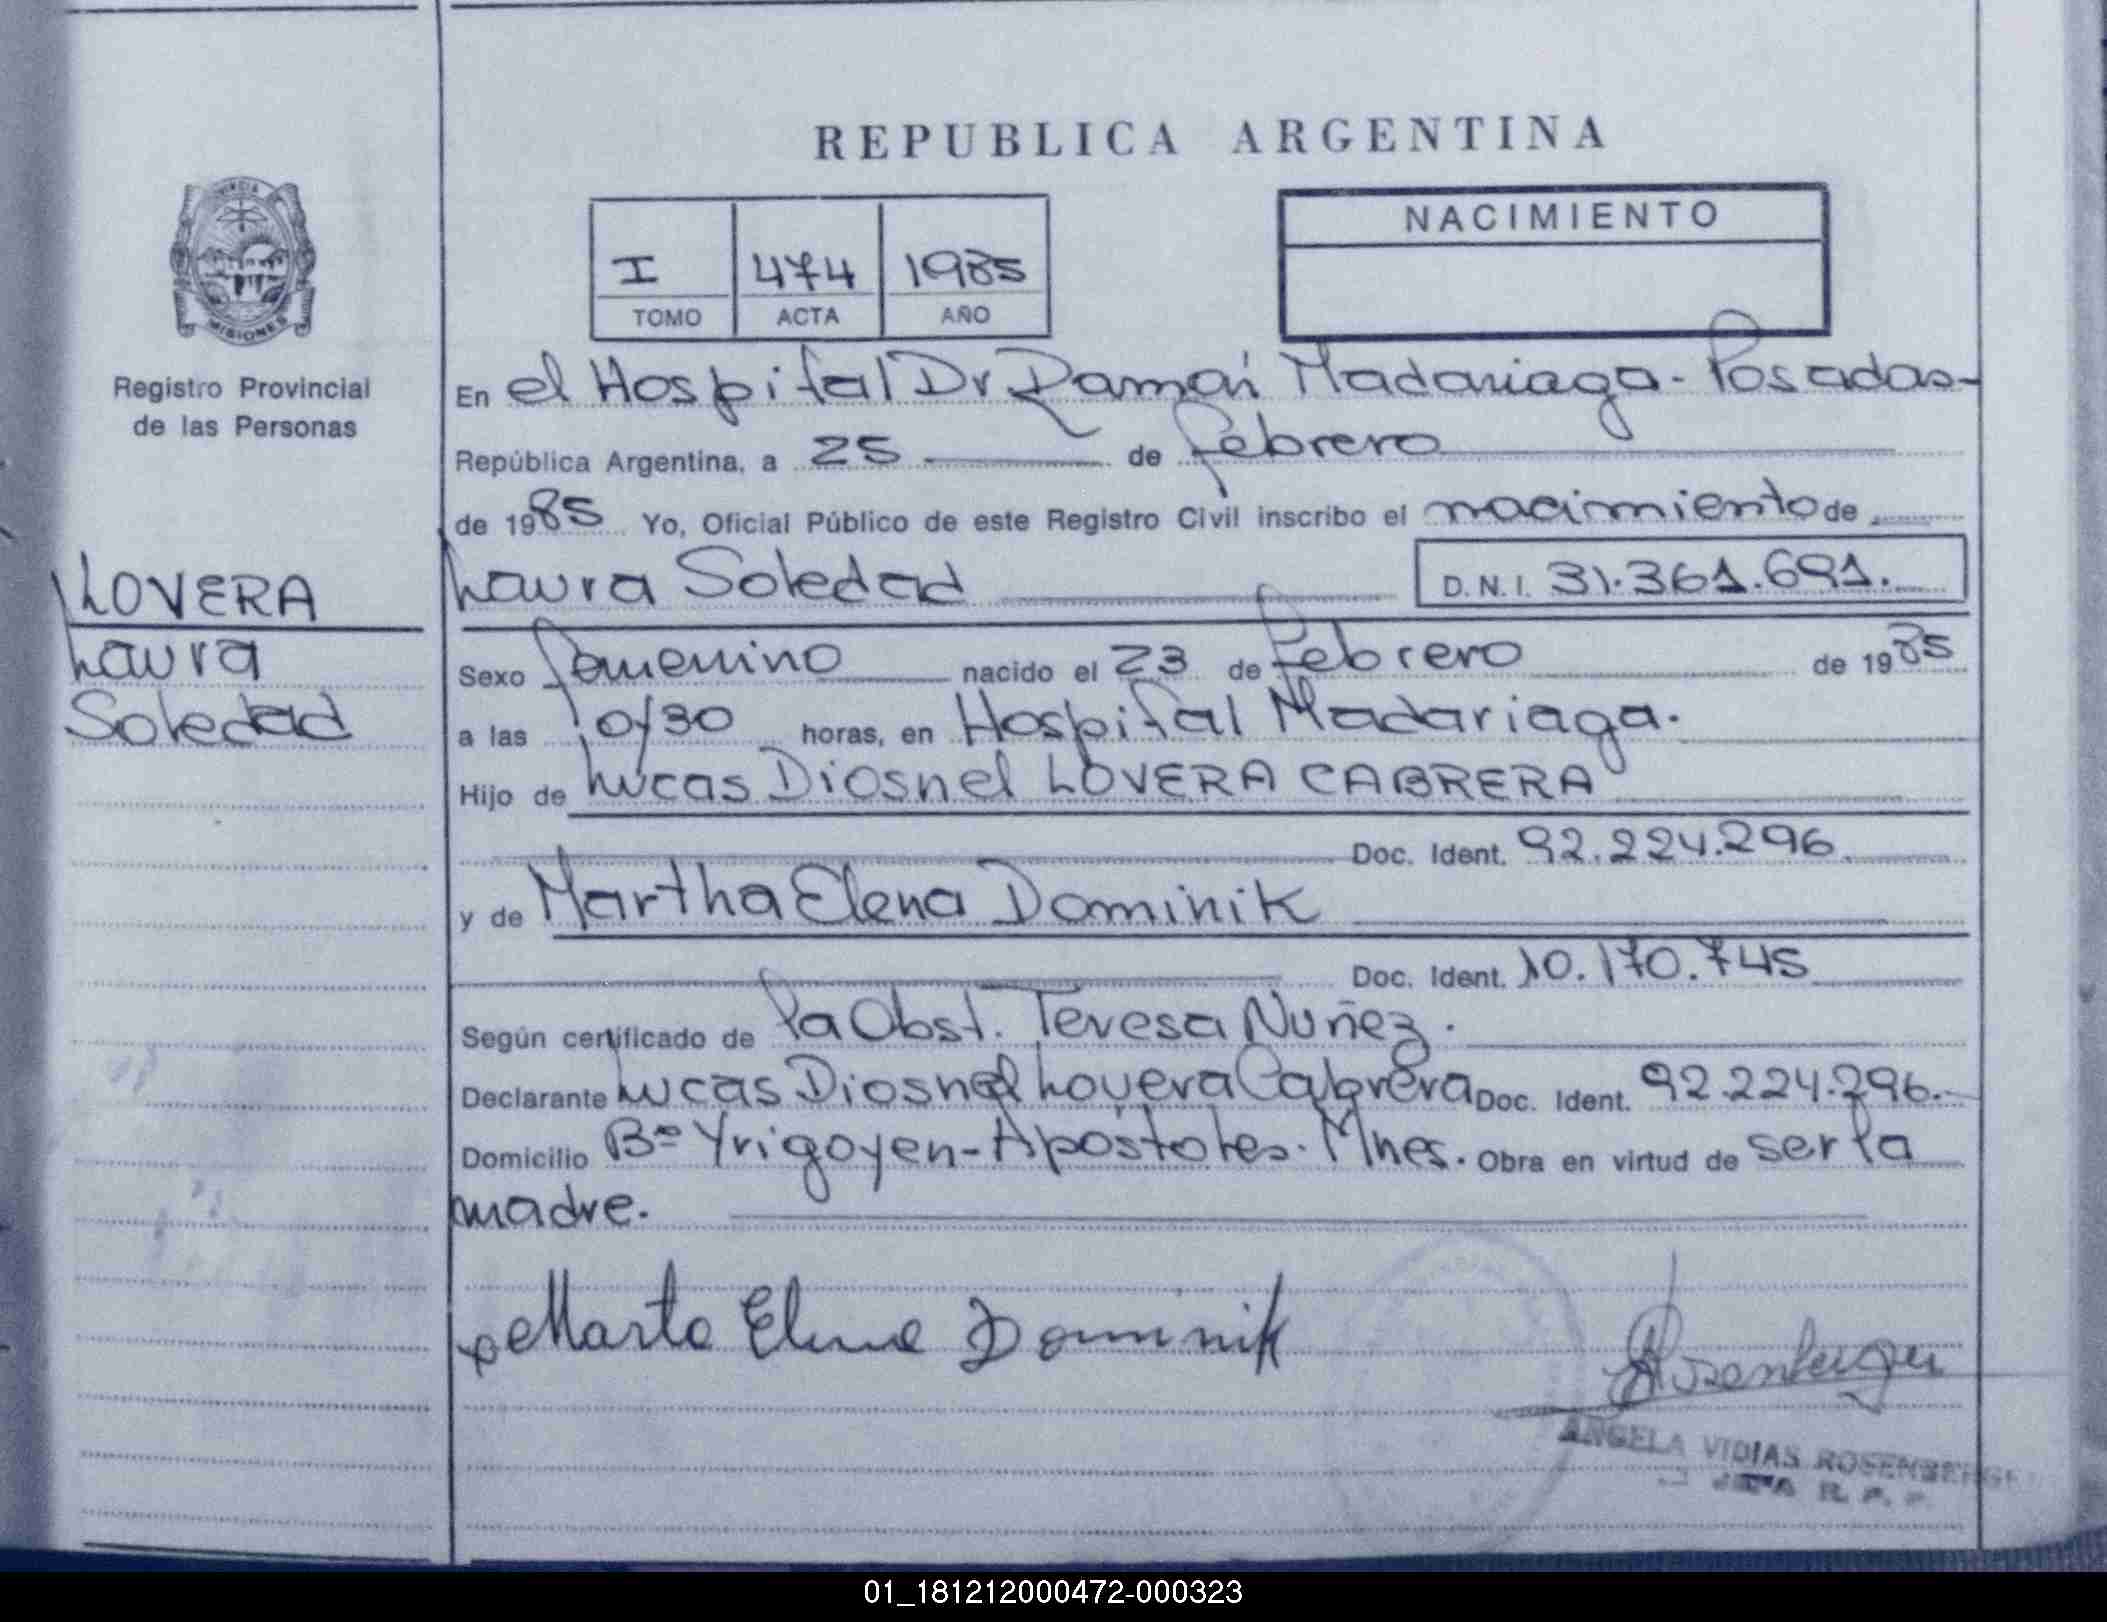 REPUBLICA ARGENTINA
I 474 1985
TOMO ACTA AÑO
NACIMIENTO
PROVINCIA
MISIONES
Registro Provincial
de las Personas
LOVERA
Laura
Soledad
En el Hospital Dr Ramón Madariaga - Posadas-
República Argentina, a 25 de febrero
de 1985 Yo, Oficial Público de este Registro Civil inscribo el nacimiento de
Laura Soledad D.N.I. 31.361.691.
Sexo femenino nacido el 23 de febrero de 1985
a las 0/30 horas, en Hospital Madariaga.
Hijo de Lucas Diosnel LOVERA CABRERA
Doc. Ident. 92.224.296
y de Martha Elena Dominik
Doc. Ident. 10.170.745
Según certificado de la Obst. Teresa Nuñez.
Declarante Lucas Diosnel Lovera Cabrera Doc. Ident. 92.224.296.
Domicilio Bº Yrigoyen - Apóstoles. Mnes. Obra en virtud de ser la
madre.
Marta Elena Dominik
ANGELA VIDIAS ROSENBERGE
01_181212000472-000323